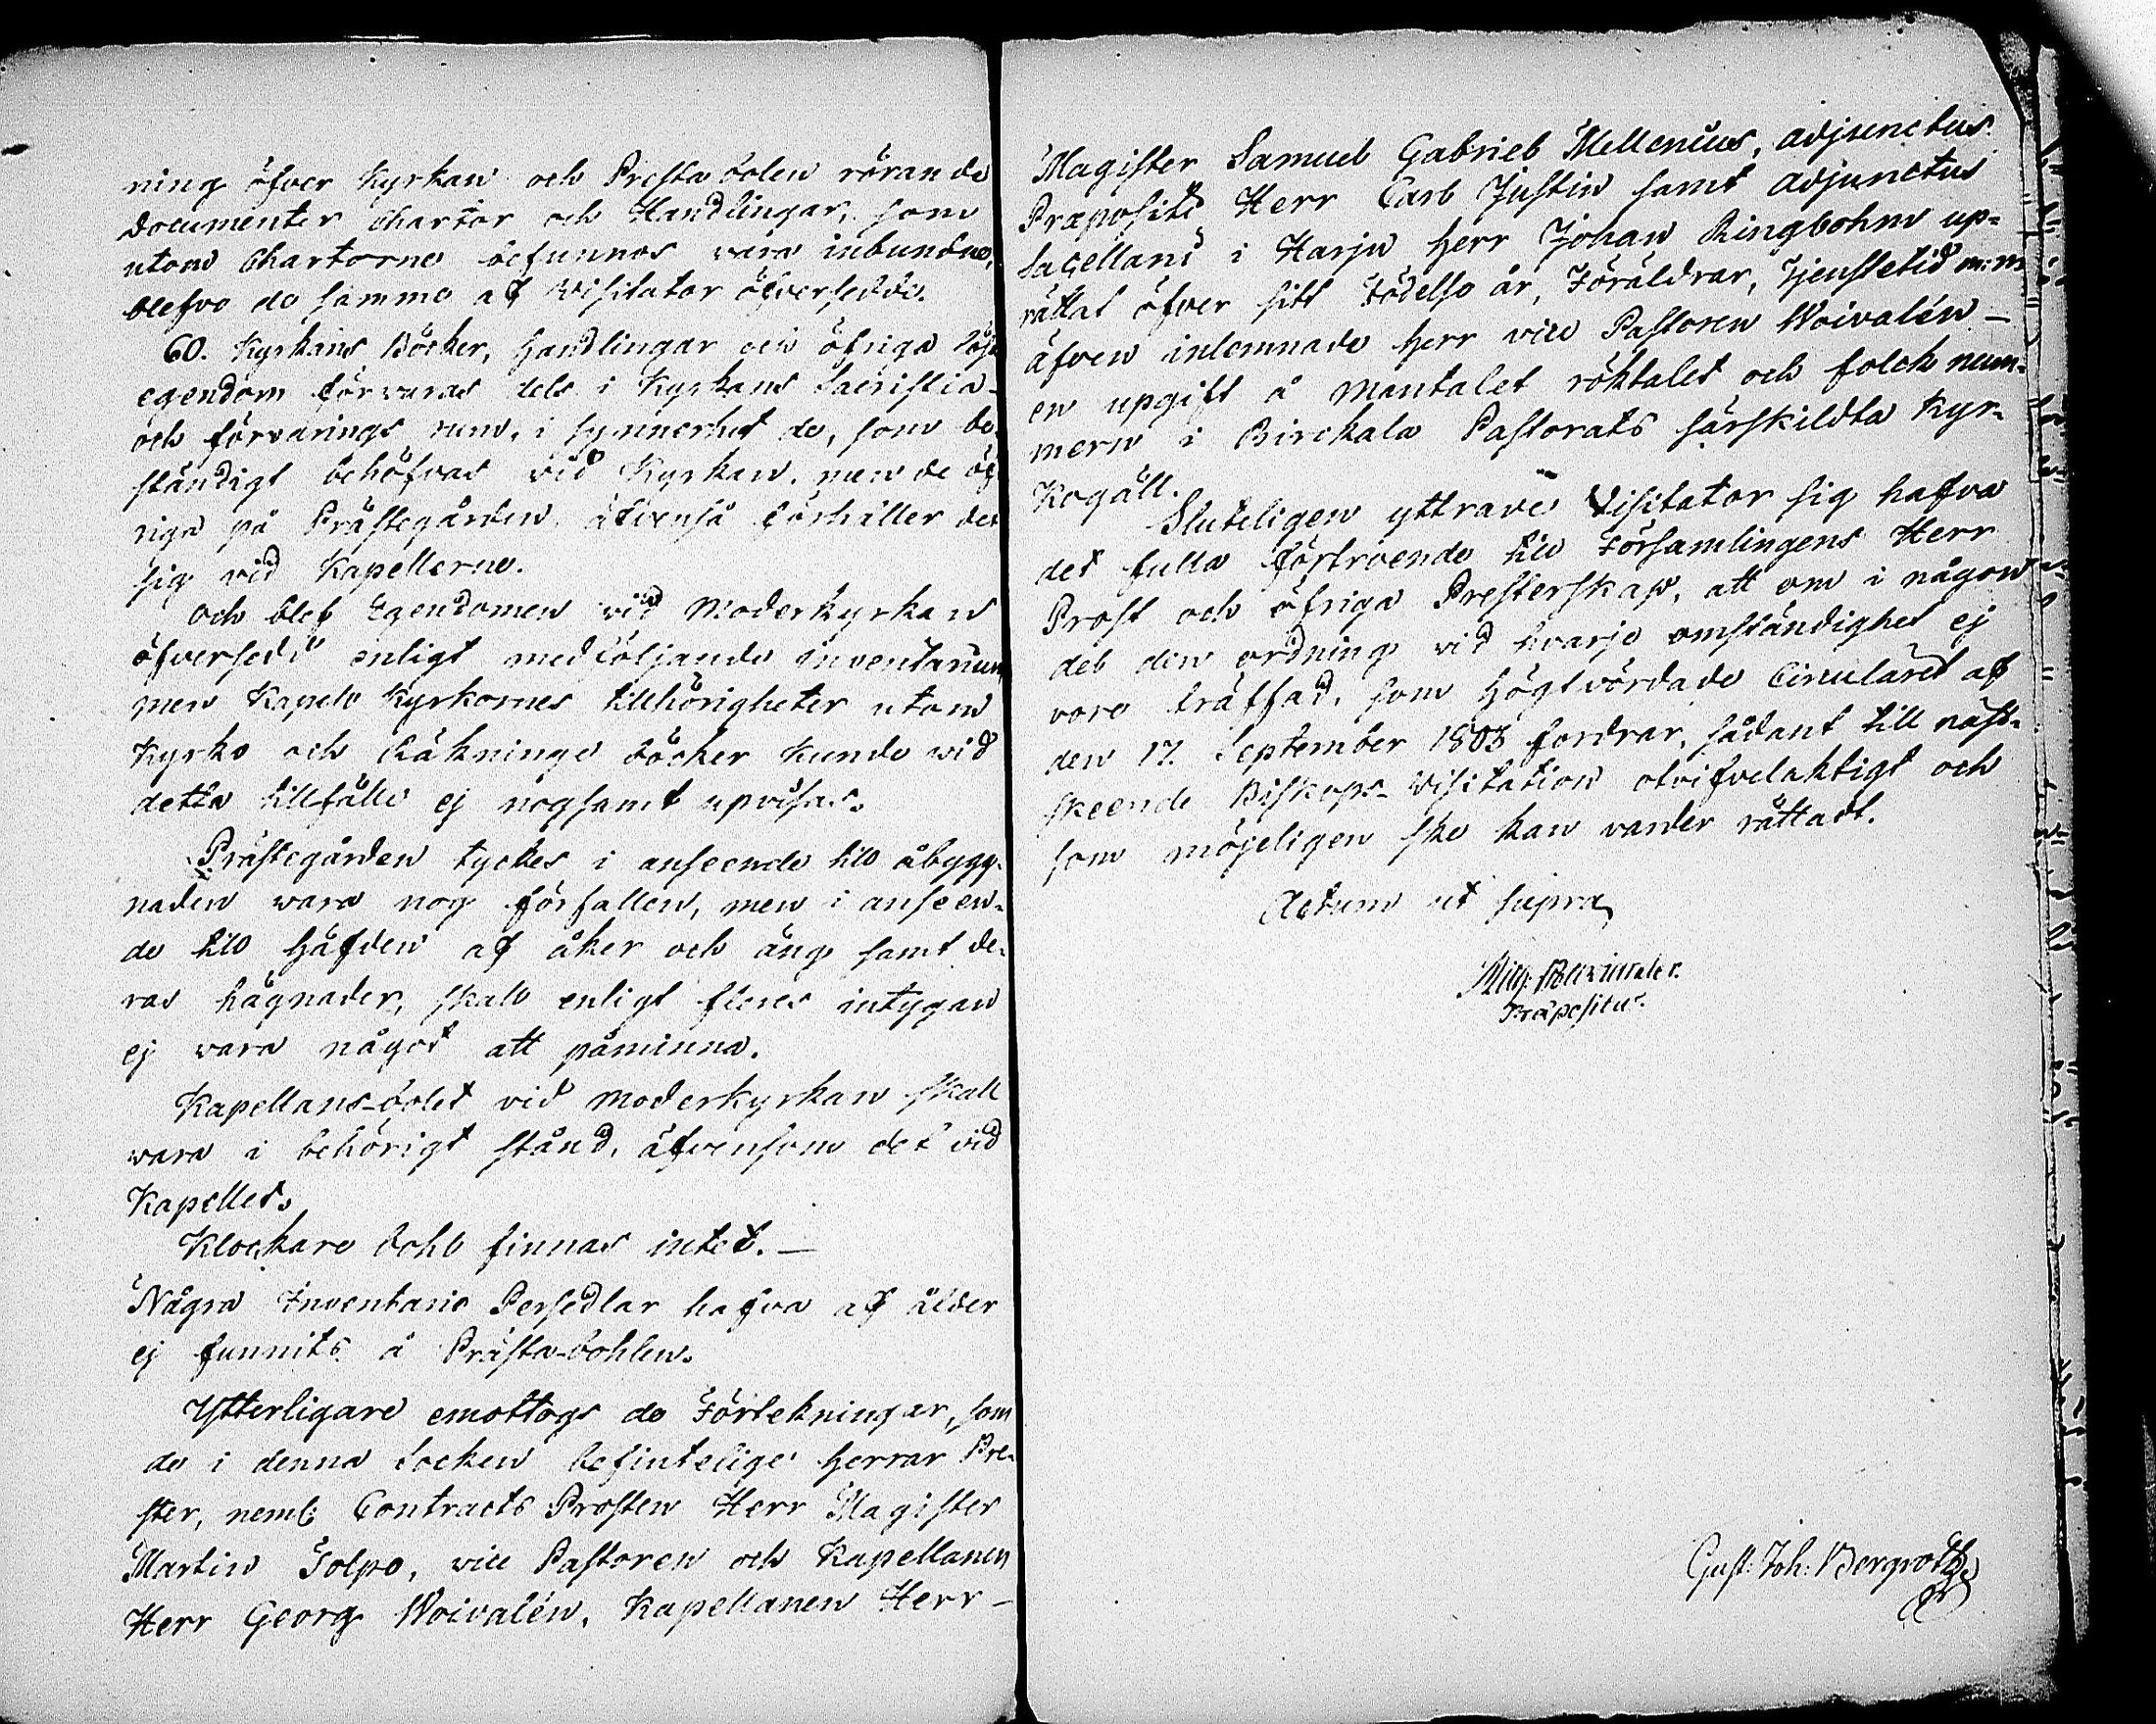 ning öfver Kyrkan och Prestabolen rörande
documenter Chartor och Handlingar, som
utom Chartorne befunnos vara inbundne,
blefvo de samme af Visitator öfversedde.
60. Kyrkans Böcker, Handlingar och öfriga lösa
egendom förvaras dels i Kyrkans Sacristia
och förvarings rum, i synnerhet de, som be-
ständigt behöfvas vid Kyrkan, men de öf-
riga på Prästegården, äfvenså förhåller det
sig vid Kapellerne.
Och blef Egendomen vid Moderkyrkan
öfversedd enligt medföljande inventarium
men Kapell Kyrkornes tillhörigheter utom
Kyrko och Räknings Böcker kunde vid
detta tillfälle ej nogsamt upvisas.
Prästegården tyckes i anseende till åbygg-
naden vara nog förfallen, men i anseen-
de till häfden af åker och äng samt de-
ras hägnader, skall enligt fleres intygan
ej vara något att påminna.
Kapellans-bolet vid Moderkyrkan skall
vara i behörigt stånd, äfvensom det vid
Kapellet.
Klockare bohl finnas intet.
Några Inventarie Persedlar hafva af ålder
ej funnits å Prästa-bohlen.
Ytterligare emottogs de Förtekningar, som
de i denna Socken befintelige Herrar Pre-
ster, neml: Contracts Prosten Herr Magister
Martin Tolpo, vice Pastoren och Kapellanen
Herr Georg Woivalén, Kapellanen Herr
Magister Samuel Gabriel Mellenius, adjunctus
Præpositi Herr Carl Justin samt adjunctus
Sacellani i Harju Herr Johan Ringbohm up-
rättat öfver sitt Födelse år, Föräldrar, Tjenstetid m:m
äfven inlemnade Herr vice Pastoren Woivalén
en upgift å Mantalet röktalet och folck num-
mern i Birckala Pastorats särskildta Kyr-
kogäll.
Sluteligen yttrade Visitator sig hafva
det fulla förtroende till Församlingens Herr
Prost och öfriga Presterskap, att om i någon
del den ordning vid hvarje omständighet ej
vore träffad, som Högtvördade Circulairet af
den 17. September 1803 fordrar, sådant till näst-
skeende Biskops-Visitation otvifvelaktigt och
som möjeligen ske kan varder rättadt.
Actum ut supra
Præpositus.
Gust: Joh: Bergroth